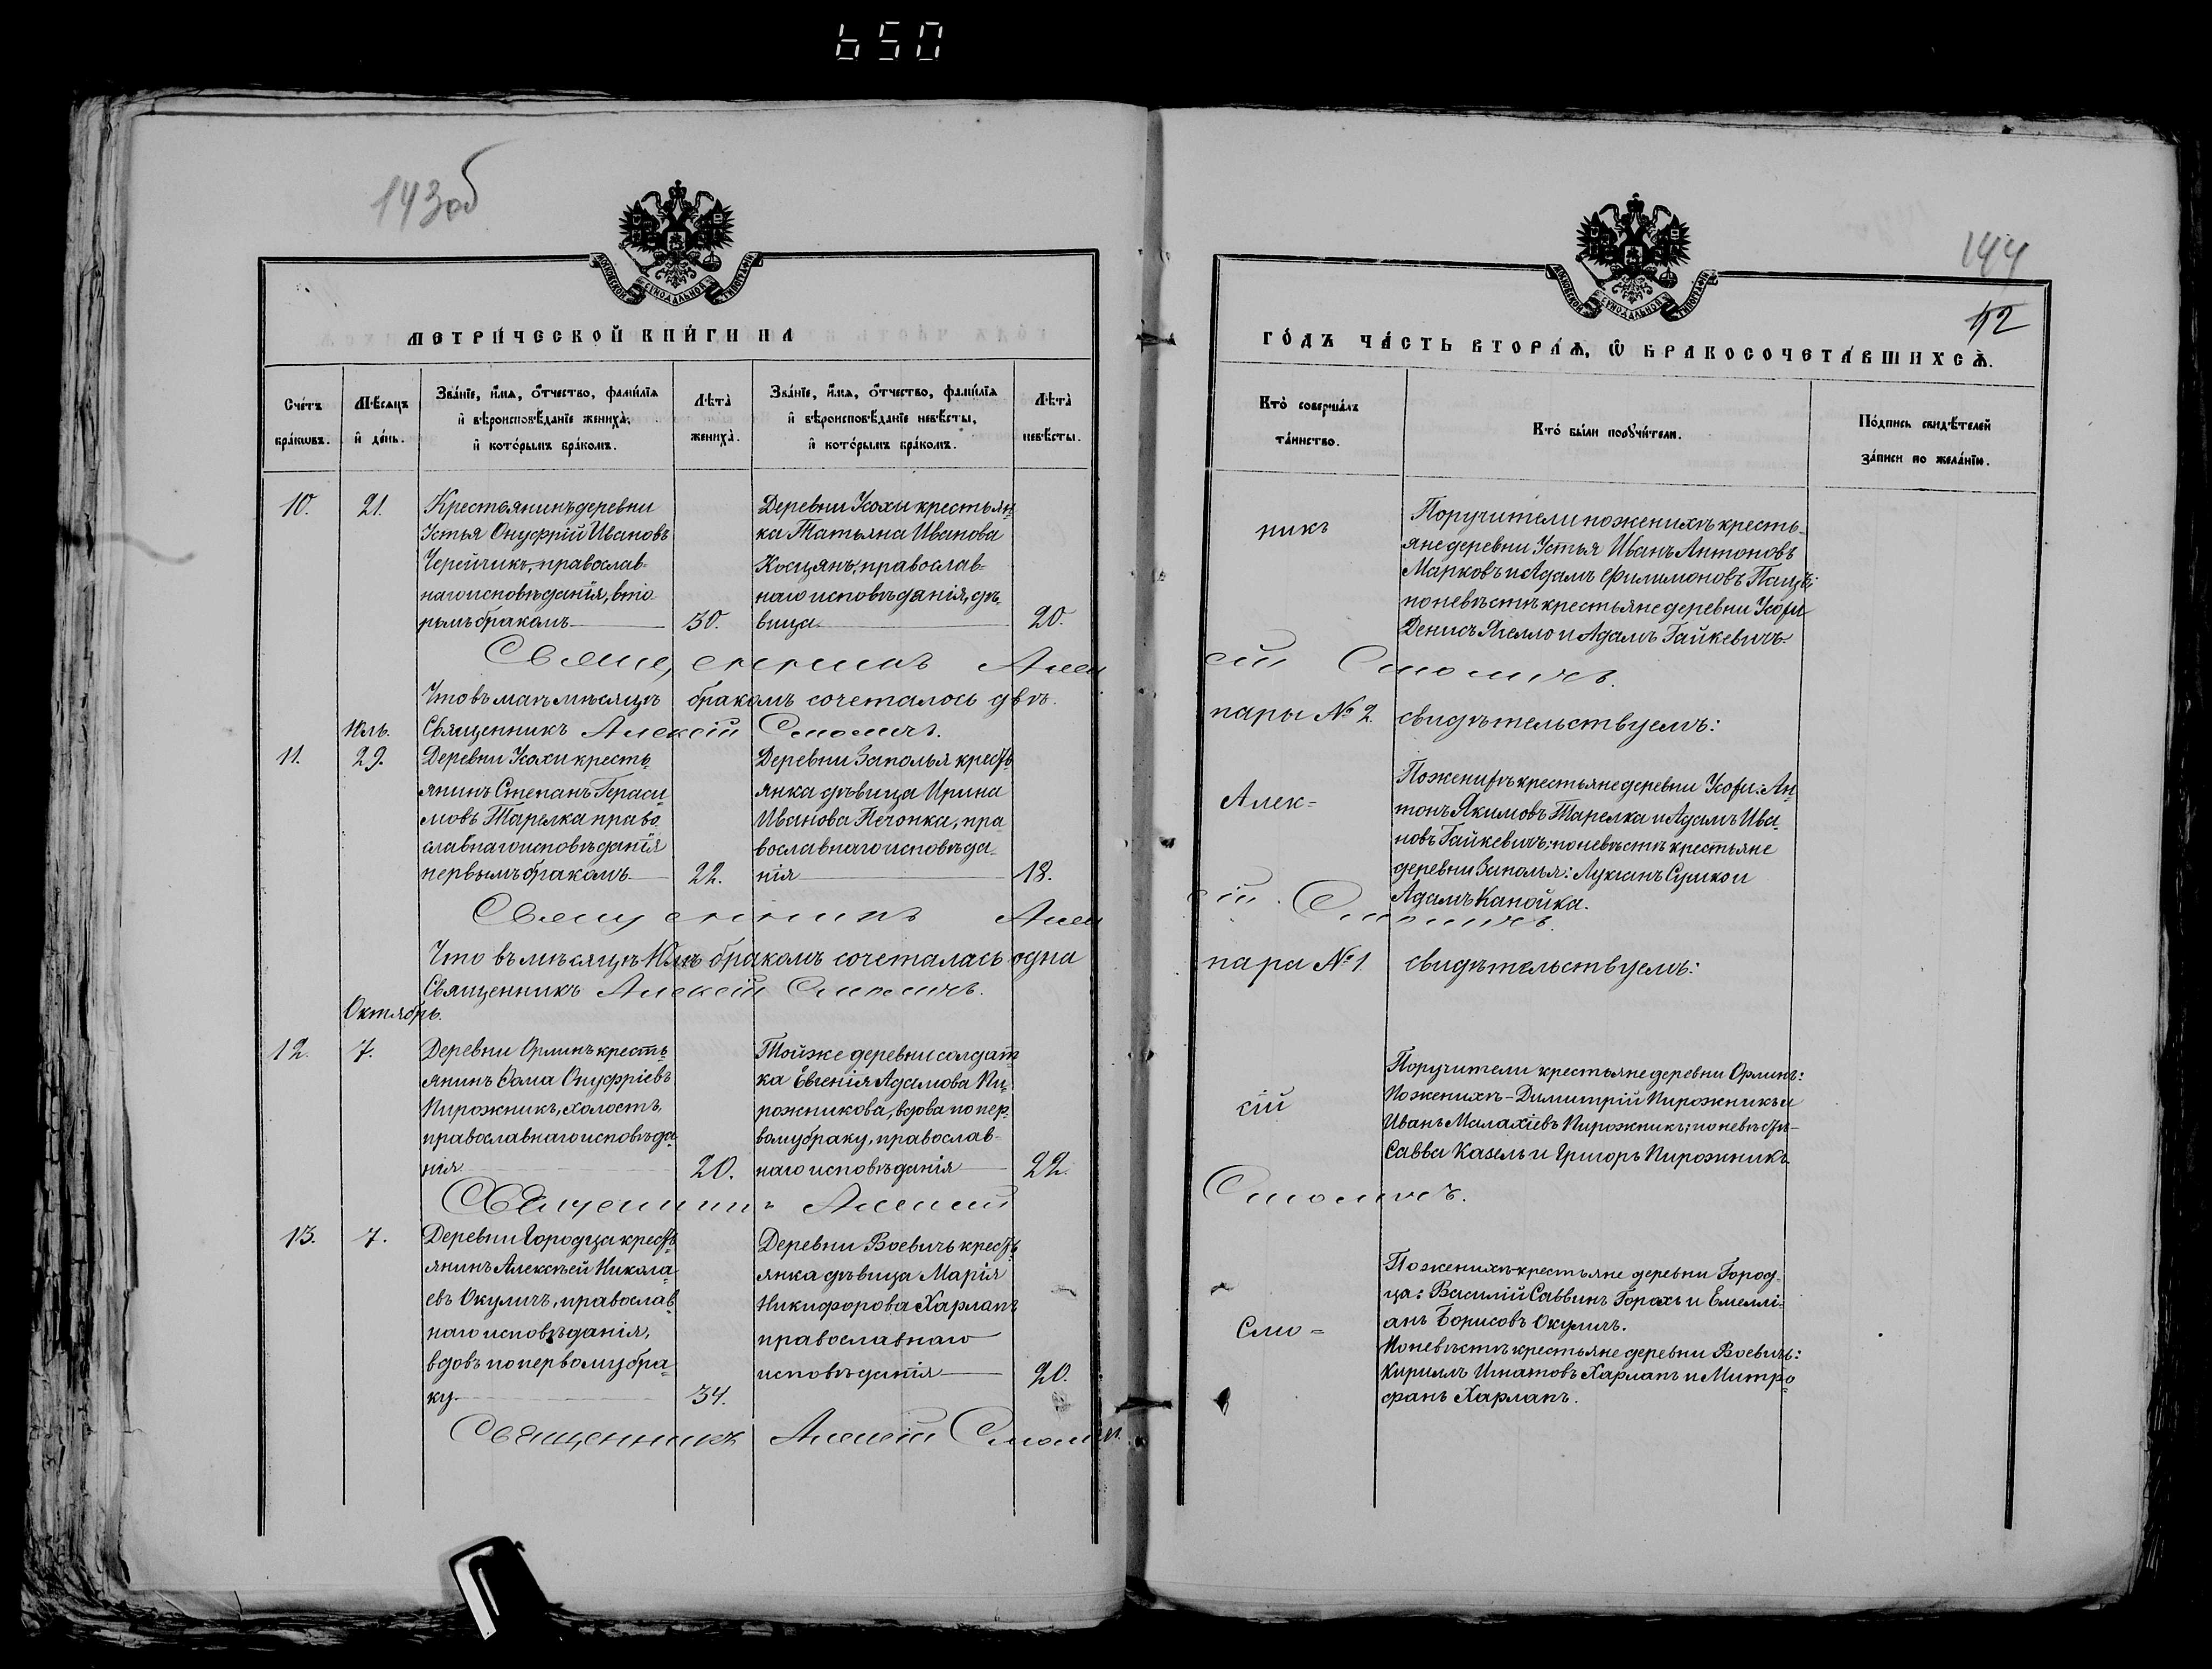 650
143об
МОСКОВСКОЙ СѴНОДАЛЬНОЙ ТИПОГРАФІИ
МЕТРИ́ЧЕСКОЙ КНИ́ГИ НА
Сче́тъ бра́ковъ.
Мѣсяцъ и де́нь.
Зва́нїе, и҆́мя, ѻ҆́тчество, фами́лїя и҆ вѣроисповѣ́данїе жениха̀, и҆ кото́рымъ бра́комъ.
Лѣта̀ жениха̀.
Зва́нїе, и҆́мя, ѻ҆́тчество, фами́лїя и҆ вѣроисповѣ́данїе невѣ́сты, и҆ кото́рымъ бра́комъ.
Лѣта̀ невѣ́сты.
10.
21.
Крестьянинъ деревни
Устья Онуфрій Ивановъ
Черейчикъ, православ-
наго исповѣданія, вто-
рымъ бракомъ
30.
Деревни Усохи крестьян-
ка Татьяна Иванова
Косцянъ, православ-
наго исповѣданія, дѣ-
вица
20.
Священникъ Алек
Что въ маѣ мѣсяцѣ бракомъ сочеталось двѣ
Іюль.
Священникъ Алексій Смоличъ.
11.
29.
Деревни Усохи кресть-
янинъ Степанъ Гераси-
мовъ Тарелка право-
славнаго исповѣданія
первымъ бракомъ
22.
Деревни Заполья кресть-
янка дѣвица Ирина
Иванова Печонка, пра-
вославнаго исповѣда-
нія
18.
Священникъ Алек
Что въ мѣсяцѣ Юлѣ бракомъ сочеталась одна
Священникъ Алексій Смоличъ.
Октябрь.
12.
7.
Деревни Орлинъ кресть-
янинъ Ѳома Онуфріевъ
Пирожникъ, холостъ,
православнаго исповѣда-
нія
20.
Тойже деревни солдат-
ка Евгенія Адамова Пи-
рожникова, вдова по пер-
вому браку, православ-
наго исповѣданія
22.
Священникъ Алексій
13.
7.
Деревни Городца кресть-
янинъ Алексѣй Никола-
евъ Окуличъ, православ-
наго исповѣданія,
вдовъ по первому бра-
ку
34.
Деревни Воевичъ кресть-
янка дѣвица Марія
Никифорова Харланъ
православнаго
исповѣданія
20.
Священникъ Алексій Смоличъ.
144
МОСКОВСКОЙ СѴНОДАЛЬНОЙ ТИПОГРАФІИ
42
ГО́ДЪ ЧА́СТЬ ВТОРА́Я, Ѽ БРАКОСОЧЕТА́ВШИХСѦ.
Кто̀ соверша́лъ та́инство.
Кто́ были порꙋчи́тели.
По́дпись свидѣ́телей за́писи по жела́нїю.
никъ
Поручители по женихѣ кресть-
яне деревни Устья Иванъ Антоновъ
Марковъ и Адамъ Филимоновъ
по невѣстѣ крестьяне деревни Усохи
Денисъ Ягелло и Адамъ Гайкевичъ.
сій Смоличъ.
пары № 2. свидѣтельствуемъ:
Алек-
По женихѣ крестьяне деревни Усохи: Ан-
тонъ Якимовъ Тарелка и Адамъ Ива-
новъ Гайкевичъ; по невѣстѣ крестьяне
деревни Заполья: Лукьянъ Сушко и
Адамъ Канойка.
сій. Смоличъ.
пара № 1. свидѣтельствуемъ:
сій
Поручители крестьяне деревни Орлинъ:
По женихѣ - Димитрій Пирожникъ и
Иванъ Малахіевъ Пирожникъ; по невѣстѣ -
Савва Казелъ и Григоръ Пирожникъ.
Смоличъ.
Смо-
По женихѣ крестьяне деревни Город-
ца: Василій Саввинъ Горахъ и Емелліа-
анъ Борисовъ Окуличъ.
По невѣстѣ крестьяне деревни Воевичъ:
Кириллъ Игнатовъ Харланъ и Митро-
фанъ Харланъ.